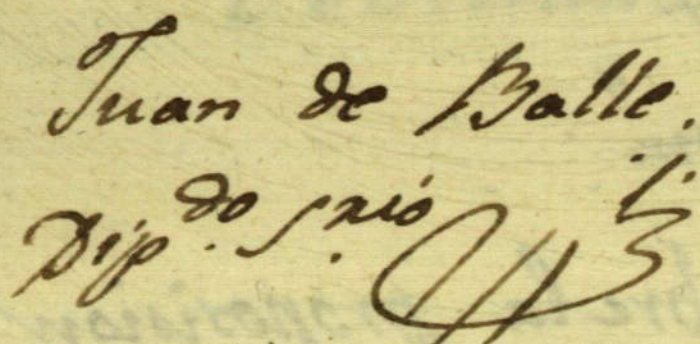 Juan de Balle.
Dip.do S.rio